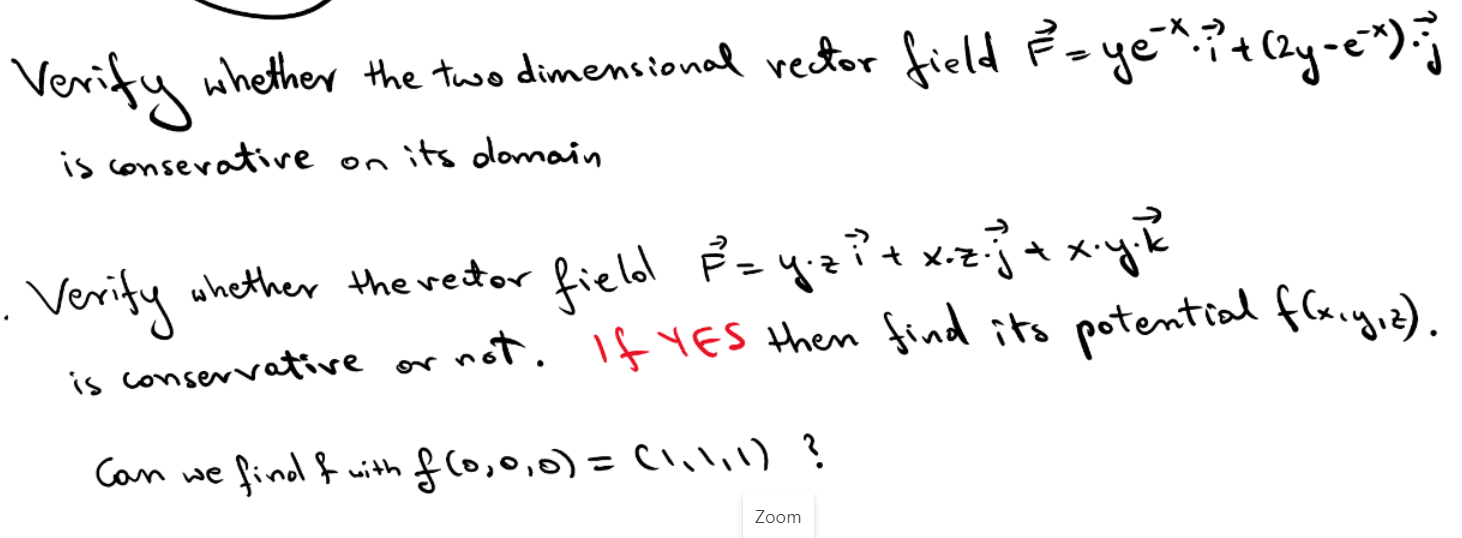 Verify whether the two dimensional vector field F⃗ = ye⁻ˣ·i⃗ + (2y-e⁻ˣ)·j⃗
is conserative on its domain
. Verify whether the vector field F⃗ = y·z i⃗ + x·z·j⃗ + x·y·k⃗
is conservative or not. If YES then find its potential f(x,y,z).
Can we find f with f(0,0,0) = (1,1,1) ?
Zoom